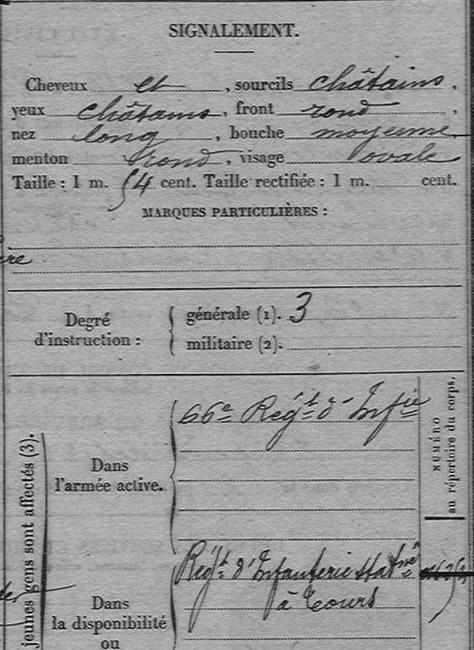 SIGNALEMENT.
Cheveux et, sourcils châtains,
yeux châtains, front rond,
nez long, bouche moyenne
menton rond, visage ovale
Taille : 1 m. 54 cent. Taille rectifiée : 1 m. cent.
MARQUES PARTICULIÈRES :
Degré d'instruction :
générale (1). 3
militaire (2).
66e Regt d'Infie
NUMÉRO
au répertoire du corps.
jeunes gens sont affectés (3).
Dans
l'armée active.
Regt d'Infanterie statné
à Tours
Dans
la disponibilité
ou